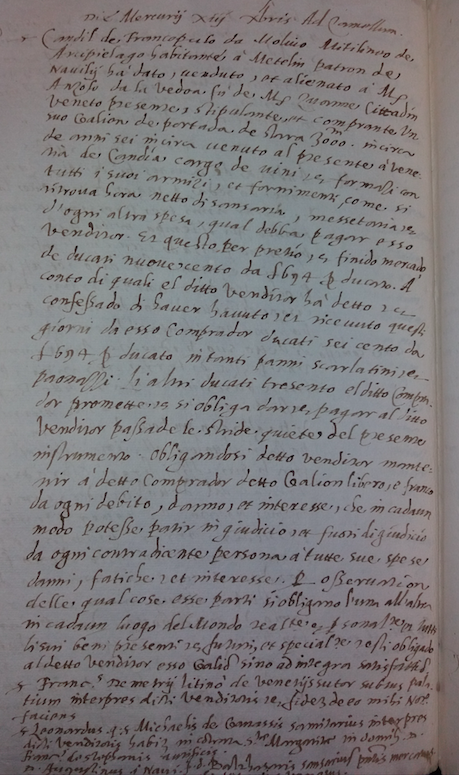 Die Mercurij xiij Xbris Ad Cancellum.
Candil de Francopulo da Molino Mitilineo de
Arcipielago habitante à Metelin patron de
Navilij hà dato, venduto, et alienato à Mr
Anzolo da la Vedoa fo de Mr Cittadin
Veneto presente, stipulante, et comprante Un
suo Galion de portada de stara 3000 in circa
de anni sei in circa venuto al presente à Vene
tia de Candia cargo de vini, et formazi con
tutti i suoi armizi, et fornimenti come si
ritrova hora netto di sansaria, messetaria, et
d'ogni altra spesa, qual debba pagar esso
Venditor. Et questo per prezio, et finido mercado
de ducati nuovecento da £6 s4 per ducato. A
conto di quali el ditto Venditor hà detto et
confessado di haver havuto, et ricevuto questi
giorni da esso Comprador ducati sei cento da
£6 s4 per ducato in tanti panni scarlatini, et
paonazzi. Li altri ducati tresento el ditto Compra
dor promette, et si obliga dar, et pagar al ditto
Venditor passade le stride quiete del presente
instrumento. Obligandosi detto venditor mante
nir à detto Comprador detto Galion libero, et franco
da ogni debito, danno, et interesse, che in cadaun
modo potesse patir in giudicio, et fuori di giudicio
da ogni contradicente persona à tutte sue spese
danni, fatiche, et interesse. Per osservation
delle qual cose esse parti si obligano l'una all'altra
in cadaun luogo del Mondo in tutti
li suoi beni presenti, et futuri, et resti obligado
al detto venditor esso Galion sino ad integra satisfattion
Franc Demetrij de Venetijs sutor subtus pala
tium interpres dicti venditoris et fidem de eo mihi Notario
faciens
Leonardus q. s. Michaelis de samitarius interpres
dicti venditoris habit. in contrata Stae Margarite in domibus
Franc aurificis
Augustinus Navi sansarius